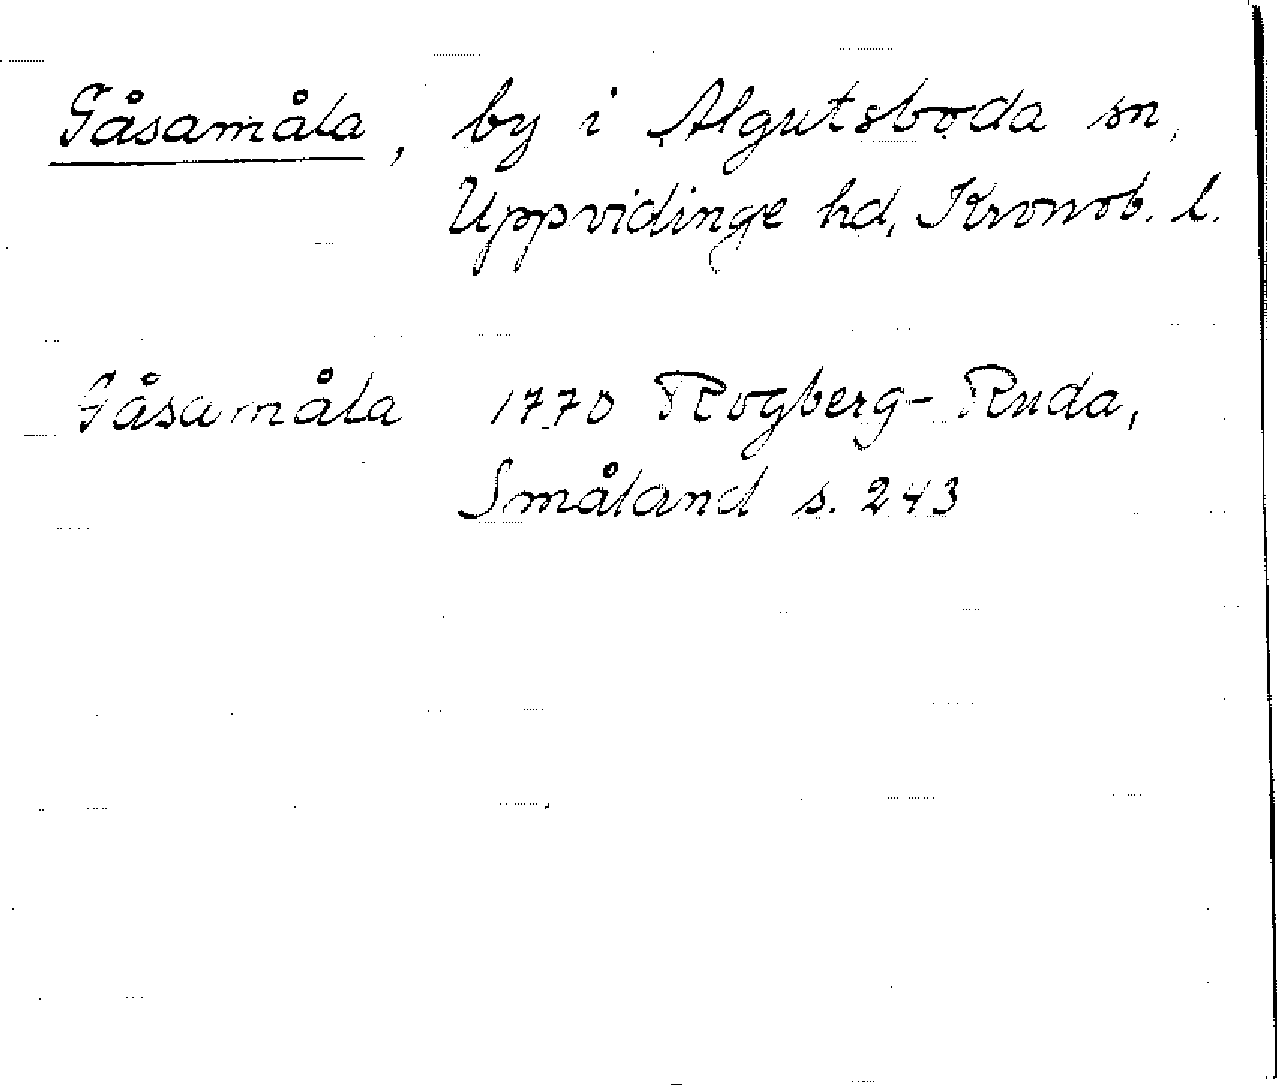 Gåsamåla, by i Algutsboda sn,
Uppvidinge hd, Kronob. l.
Gåsamåla 1770 Rogberg-Ruda,
Småland s. 243